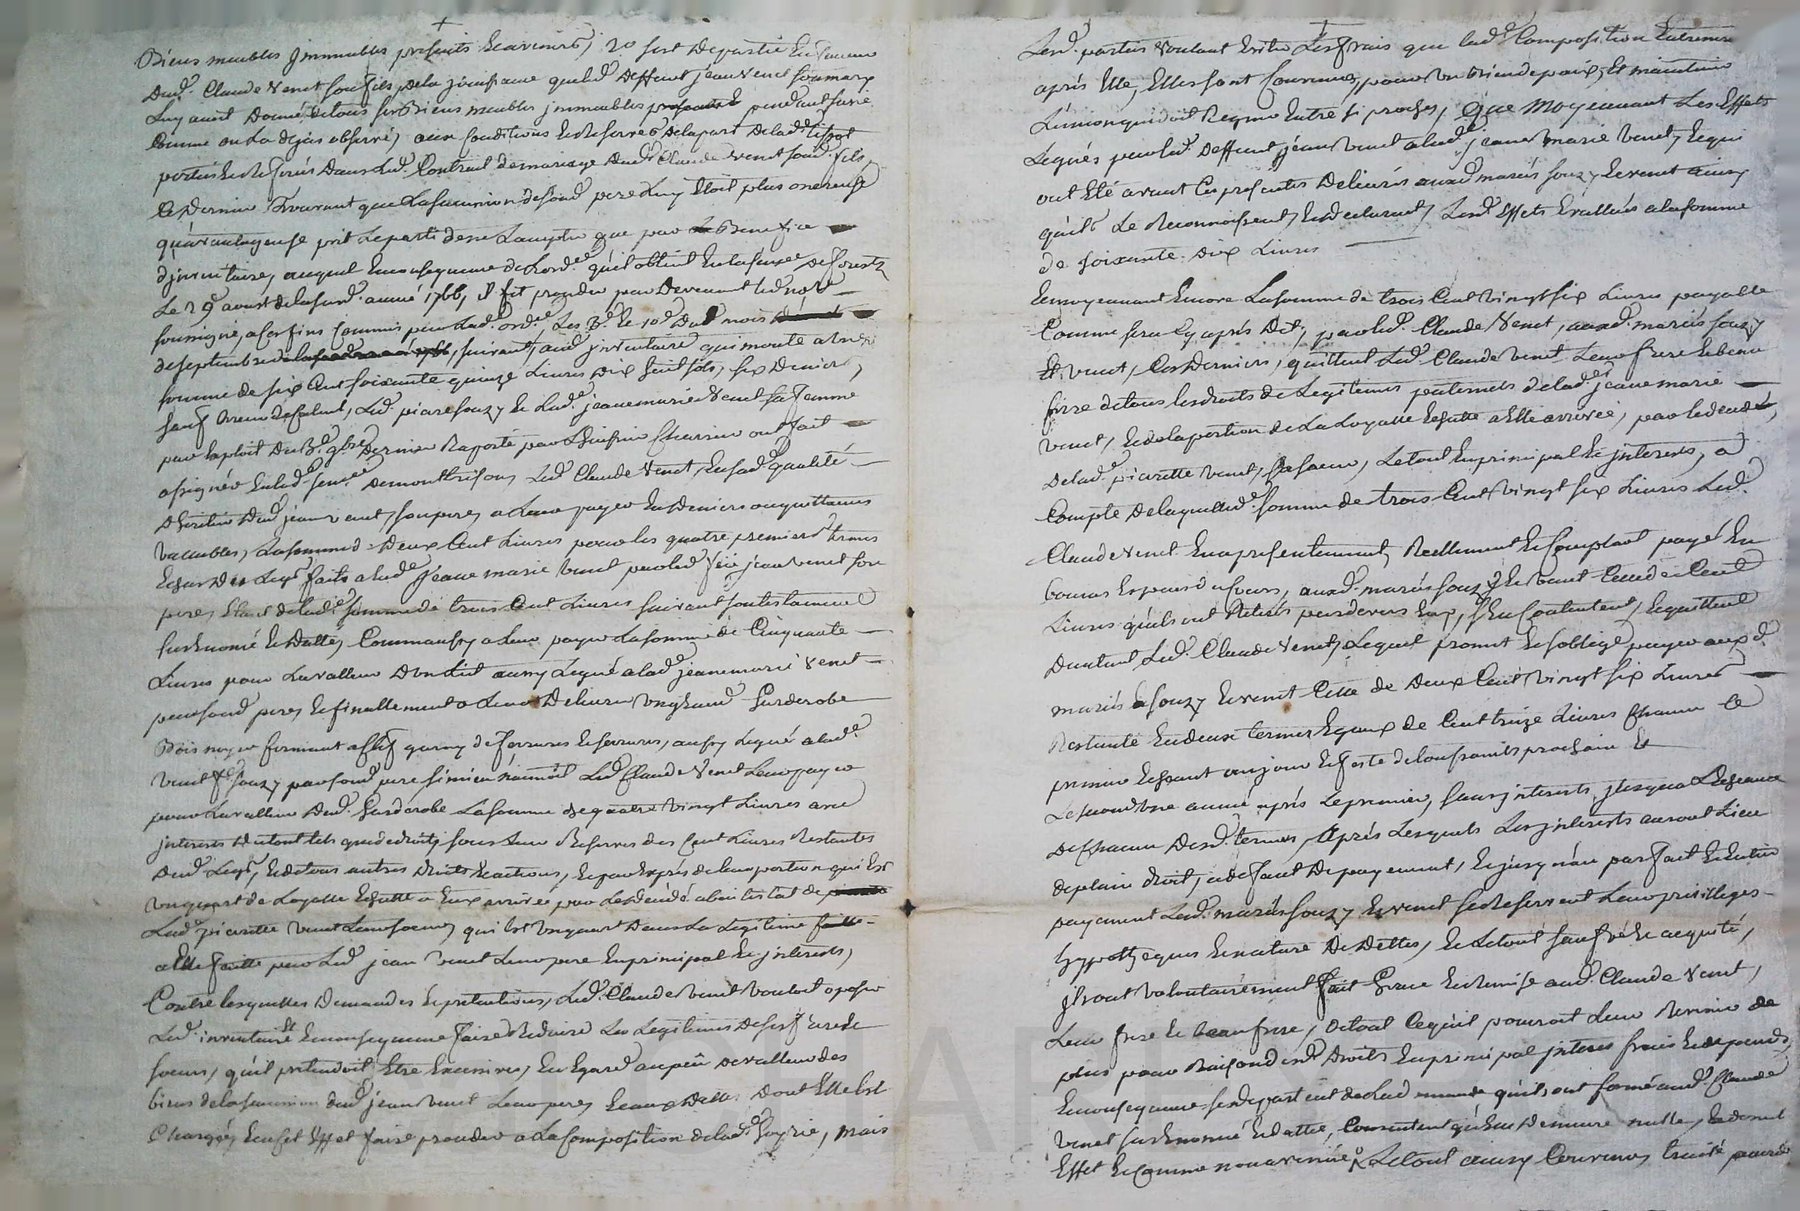 Biens meubles Immeubles presents & avenirs,
Dud. Claude Venet son fils, de la jouissance que led. deffunt jean Venet
Luy avoit Donné de tous ses Biens meubles immeubles pendant sa vie
Comme on La dejas observé, aux Conditions & Reserves de la part de lad.
portés & Referés Dans led. Contrat de mariage dud. Claude Venet sond. fils,
Ce Dernier Trouvant que La succession de sond. pere Luy Etoit plus onereuse
qu'avantageuse prit Le parti de ne L'accepter que par Benefice
d'jnventaire, auquel En consequence de L'ord.ce qu'il obtint En la senec.ée de forests
Le 29e aoust de lad. année 1766, Il fit proceder par Devant led. no.re
soussigné, a Ces fins Commis par Lad. ord.ce, Les 3e & 10e Dud. mois
de septembre suivant, aud. jnventaire qui monte a la
somme de six Cent soixante quinze Livres dix huit sols, six Deniers,
sauf Erreur de Calcul, Led. piere souzy & Lad. jeanne marie Venet sa femme
par Exploit Du 3e 9bre Dernier Raporté par L'huissier Charrier ont fait
assigner En lad. senec.ée De montbrison, Led. Claude Venet, En sad. qualité
D'heritier Dud. jean Venet, son pere, a Leur payer En Deniers ou quittances
vallables, La somme de Deux Cent Livres pour les quatre premiers termes
Echus Du Legs faits a lad. jeanne marie Venet par led. feu jean Venet son
pere, Etant de lad. somme de trois Cent Livres suivant son testament
susEnoncé & Datté, Comm'aussy a Leur payer La somme de Cinquante
Livres pour La valleur D'un Lit aussy Legué a lad. jeanne marie Venet
par sond. pere, & finallement a Leur Delivrer un grand Garderobe
Bois noyer fermant a Clef garny de ferrures & serrures, aussy Legué a lad.
Venet fe souzy par sond. pere si mieux n'aimoit Led. Claude Venet Leur payer
pour La valleur Dud. Garderobe La somme de quatre Vingt Livres avec
jnterests Du tout tels que de droit, sous Leur Reserves des Cent Livres Restantes
Dud. Legs, & de tous autres Droits & actions, & par Exprés de leur portion qui Est
un quart de La part Echutte a Eux arrivée par Le deceds abintestat de
Lad. pierrette Venet Leur soeur, qui Est un quart Dans La Legitime
a Elle faitte par Led. jean Venet Leur pere En principal & jnterests,
Contre lesquelles Demandes & pretentions, Led. Claude Venet Vouloit oposer
Led. inventaire & En consequence faire Reduire Les Legitimes De ses freres &
soeurs, qu'il pretendoit Etre Excessives, Eu Egard au peu De valleur des
biens de la succession dud. jean Venet Leur pere, & aux Dettes Dont Elle Est
Chargée, & a Cet Effet faire proceder a La Composition de lad. Hoyrie, mais
Lesd. parties Voulant Eviter Les frais que lad. Composition Entraine
aprés Elle, Elles sont Convenues, pour un bien de paix, & maintenir
L'union qui doit Regner Entre si proches, Que Moyennant Les Effets
Legués par led. Deffunt jean Venet a lad. jeanne marie Venet, & qui
ont Eté avant Ces presentes Delivrés auxd. mariés souzy & Venet ainsy
qu'ils Le Reconnoissent, & Declarent, Lesd. Effets Evallués a la somme
de soixante-Dix Livres
& moyennant Encore La somme de trois Cent Vingt six Livres payable
Comme sera Cy aprés Dit, par led. Claude Venet, auxd. mariés souzy
Et Venet, Ces Derniers, quittent Led. Claude Venet Leur frere & beau
frere de tous les droits de Legitimes paternels de lad. jeanne marie
Venet, & de la portion de La Loyalle Echutte a Elle arrivée, par le deceds
de lad. pierrette Venet, sa soeur, Le tout En principal & jnterests, a
Compte de laquelle d. somme de trois Cent Vingt six Livres Led.
Claude Venet En a presentement, Reellement & Comptant payé En
bonnes Especes du Cours, auxd. mariés souzy & Venet Celle de Cent
Livres qu'ils ont Retirés par devers Eux, s'En Contentent, & quittent
D'autant Led. Claude Venet, Lequel promet & s'oblige payer auxd.
mariés souzy & Venet Celle de Deux Cent Vingt six Livres
Restante En deux termes Egaux de Cent treize Livres Chacun Le
premier Echeant au jour & feste de tous saints prochain Et
Le second une année aprés Le premier, sans jnterests, jusqu'a L'Echeance
de Chacun Desd. termes, aprés Lesquels Les jnterests auront Lieu
de plein droit, a deffaut De payement, & jusqu'au parfait & Entier
payement Lesd. mariés souzy & Venet se Reservent Leur privilleges
hypotheques & nature De Dettes, & Le tout sauf Ce acquité,
jls ont Volontairement fait Grace & Remise aud. Claude Venet,
Leur frere & beau frere, De tout Ce qu'il pourroit Leur Revenir de
plus pour Raison desd. Droits En principal jnterets frais & depends,
En consequence se departent de la demande qu'ils ont formé aud. Claude
Venet susEnoncée & dattée, Consentent qu'Elle Demeure nulle, & de nul
Effet & Comme non avenue, Le tout ainsy Convenu, traité